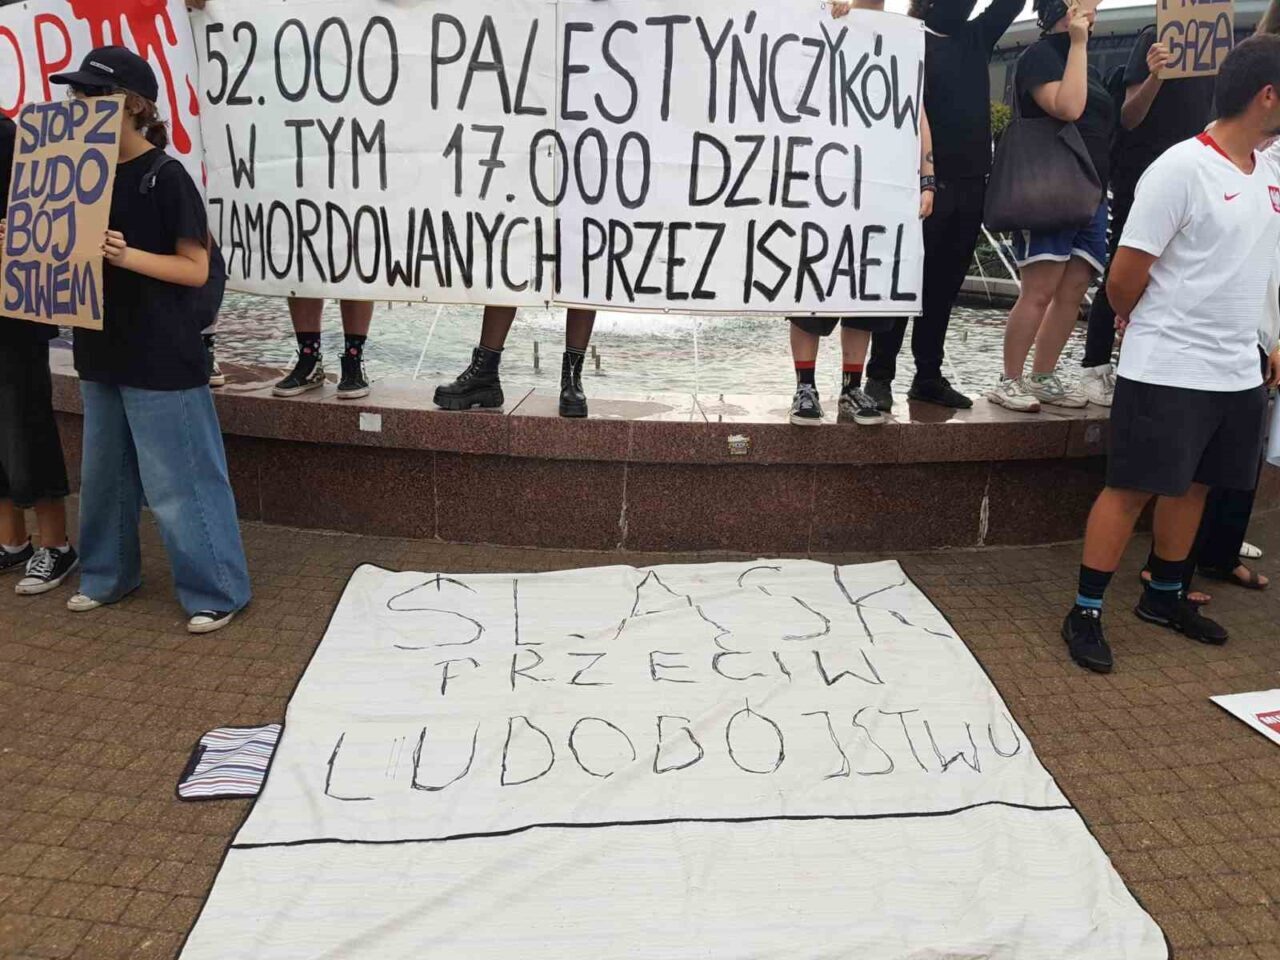 52.000 PALESTYŃCZYKÓW
W TYM 17.000 DZIECI
ZAMORDOWANYCH PRZEZ ISRAEL
STOP Z
LUDO
BÓJ
STWEM
GAZA
ŚLĄSK
PRZECIW
LUDOBÓJSTWU